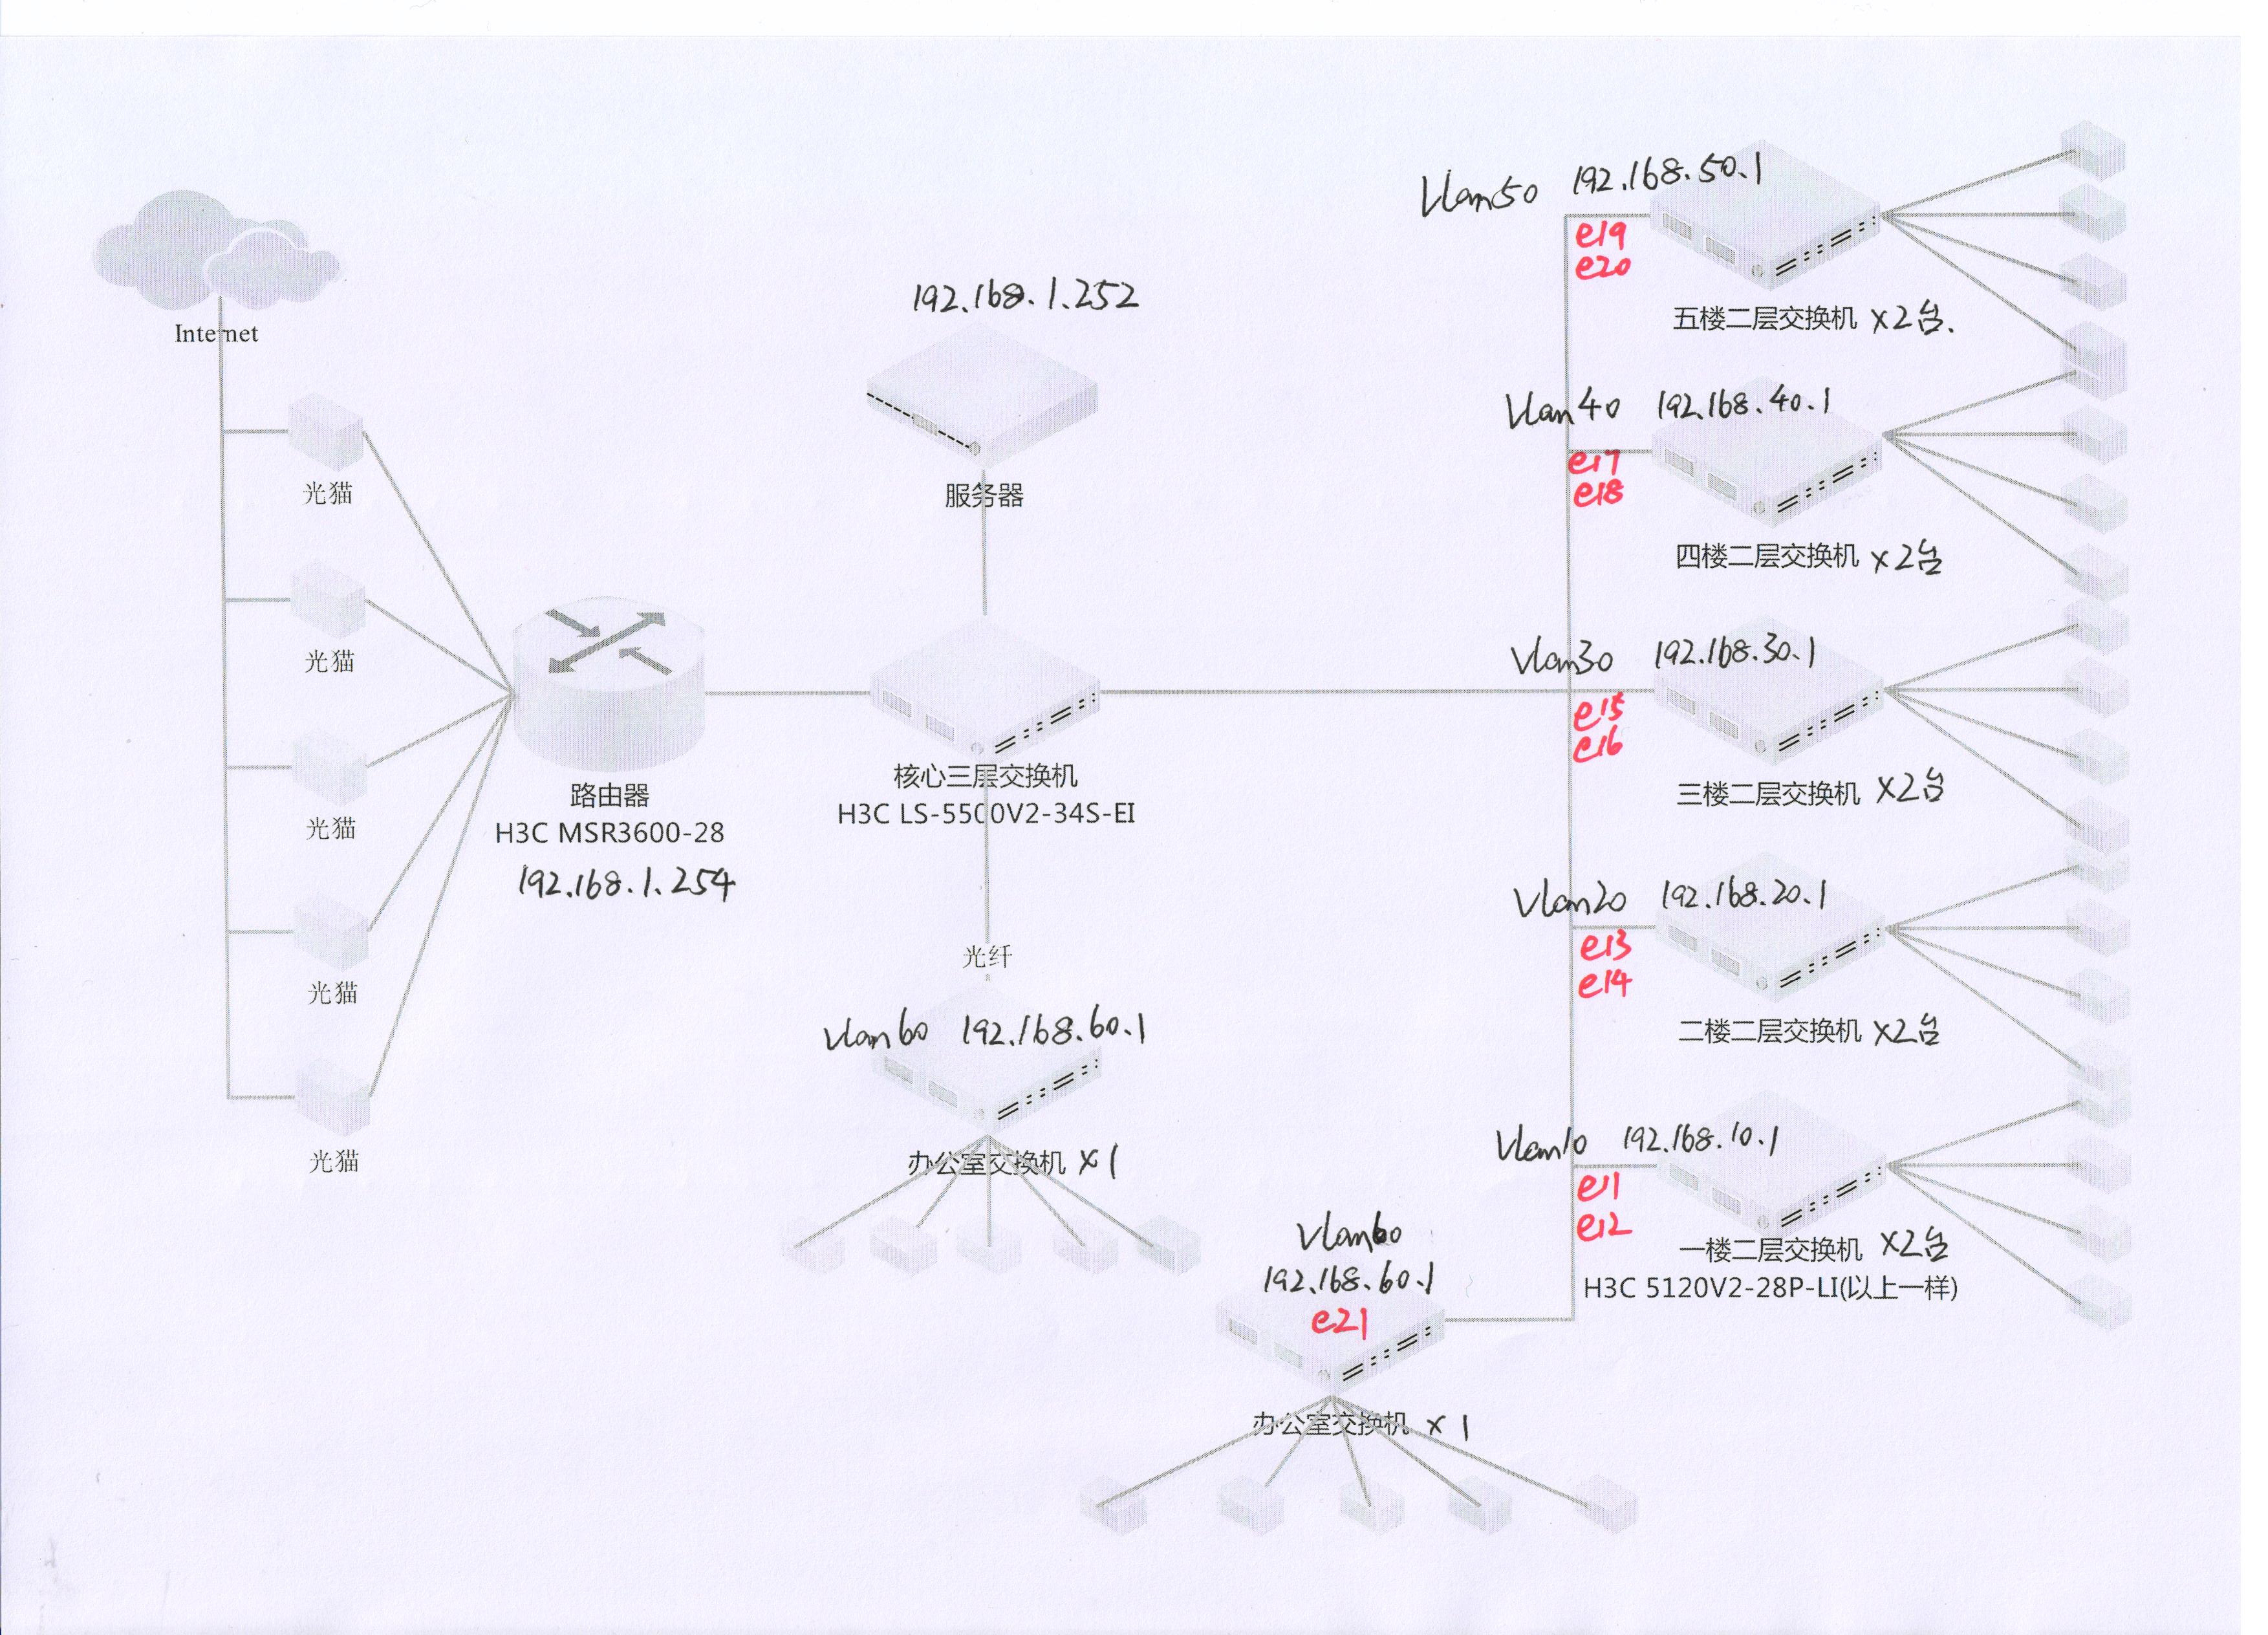 Internet
光猫
光猫
光猫
光猫
光猫
路由器
H3C MSR3600-28
192.168.1.254
192.168.1.252
服务器
核心三层交换机
H3C LS-5500V2-34S-EI
光纤
Vlan60 192.168.60.1
办公室交换机 x1
Vlan50 192.168.50.1
e19
e20
五楼二层交换机 x2台.
Vlan40 192.168.40.1
e17
e18
四楼二层交换机 x2台
Vlan30 192.168.30.1
e15
e16
三楼二层交换机 x2台
Vlan20 192.168.20.1
e13
e14
二楼二层交换机 x2台
Vlan10 192.168.10.1
e11
e12
一楼二层交换机 x2台
H3C 5120V2-28P-LI(以上一样)
Vlan60
192.168.60.1
e21
办公室交换机 x1